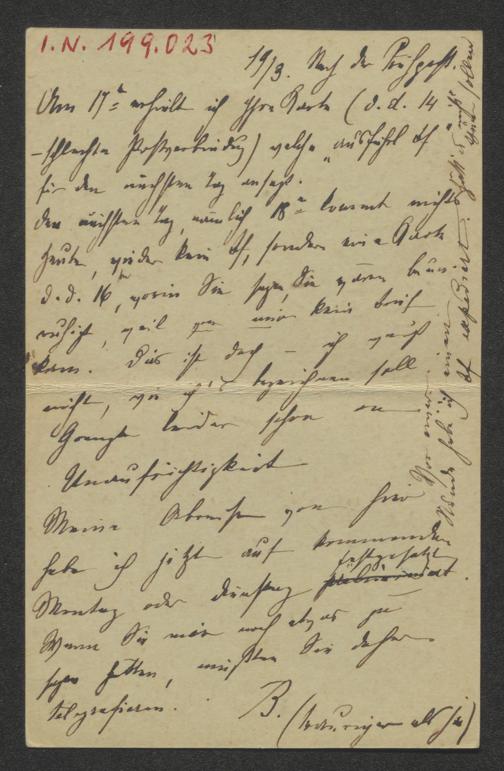 I.N. 199.023
19/3. Nach der Früpost.
Am 17ᵗ erhielt ich Ihre Karte (d. d. 14
– schlechte Postverbindung) welche „ausführl Bf"
für den nächsten Tag ansagt.
Den nächsten Tag, nämlich 18ᵗ kommt nichts
Heute, wieder kein Bf, sondern eine Karte
d. d. 16, worin Sie sagen, Sie wären beun-
ruhigt, weil von mir kein Brief
kam. Das ist doch – ich weiß
nicht, wie ich's bezeichnen soll
Grenzt leider schon an
Unaufrichtigkeit
Meine Abreise von hier
habe ich jetzt auf kommenden
Montag oder Dienstag festgesetzt.
Wenn Sie mir noch etwas zu
sagen hätten, müßten Sie daher
telegrafieren.
B. (trauriger als je)
Vor einer
Stunde habe ich einen
Bf expediert.